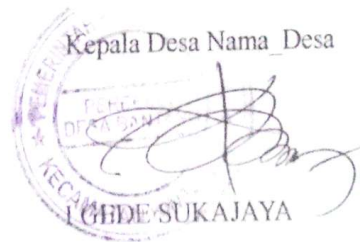 Kepala Desa Nama_Desa
I GEDE SUKAJAYA